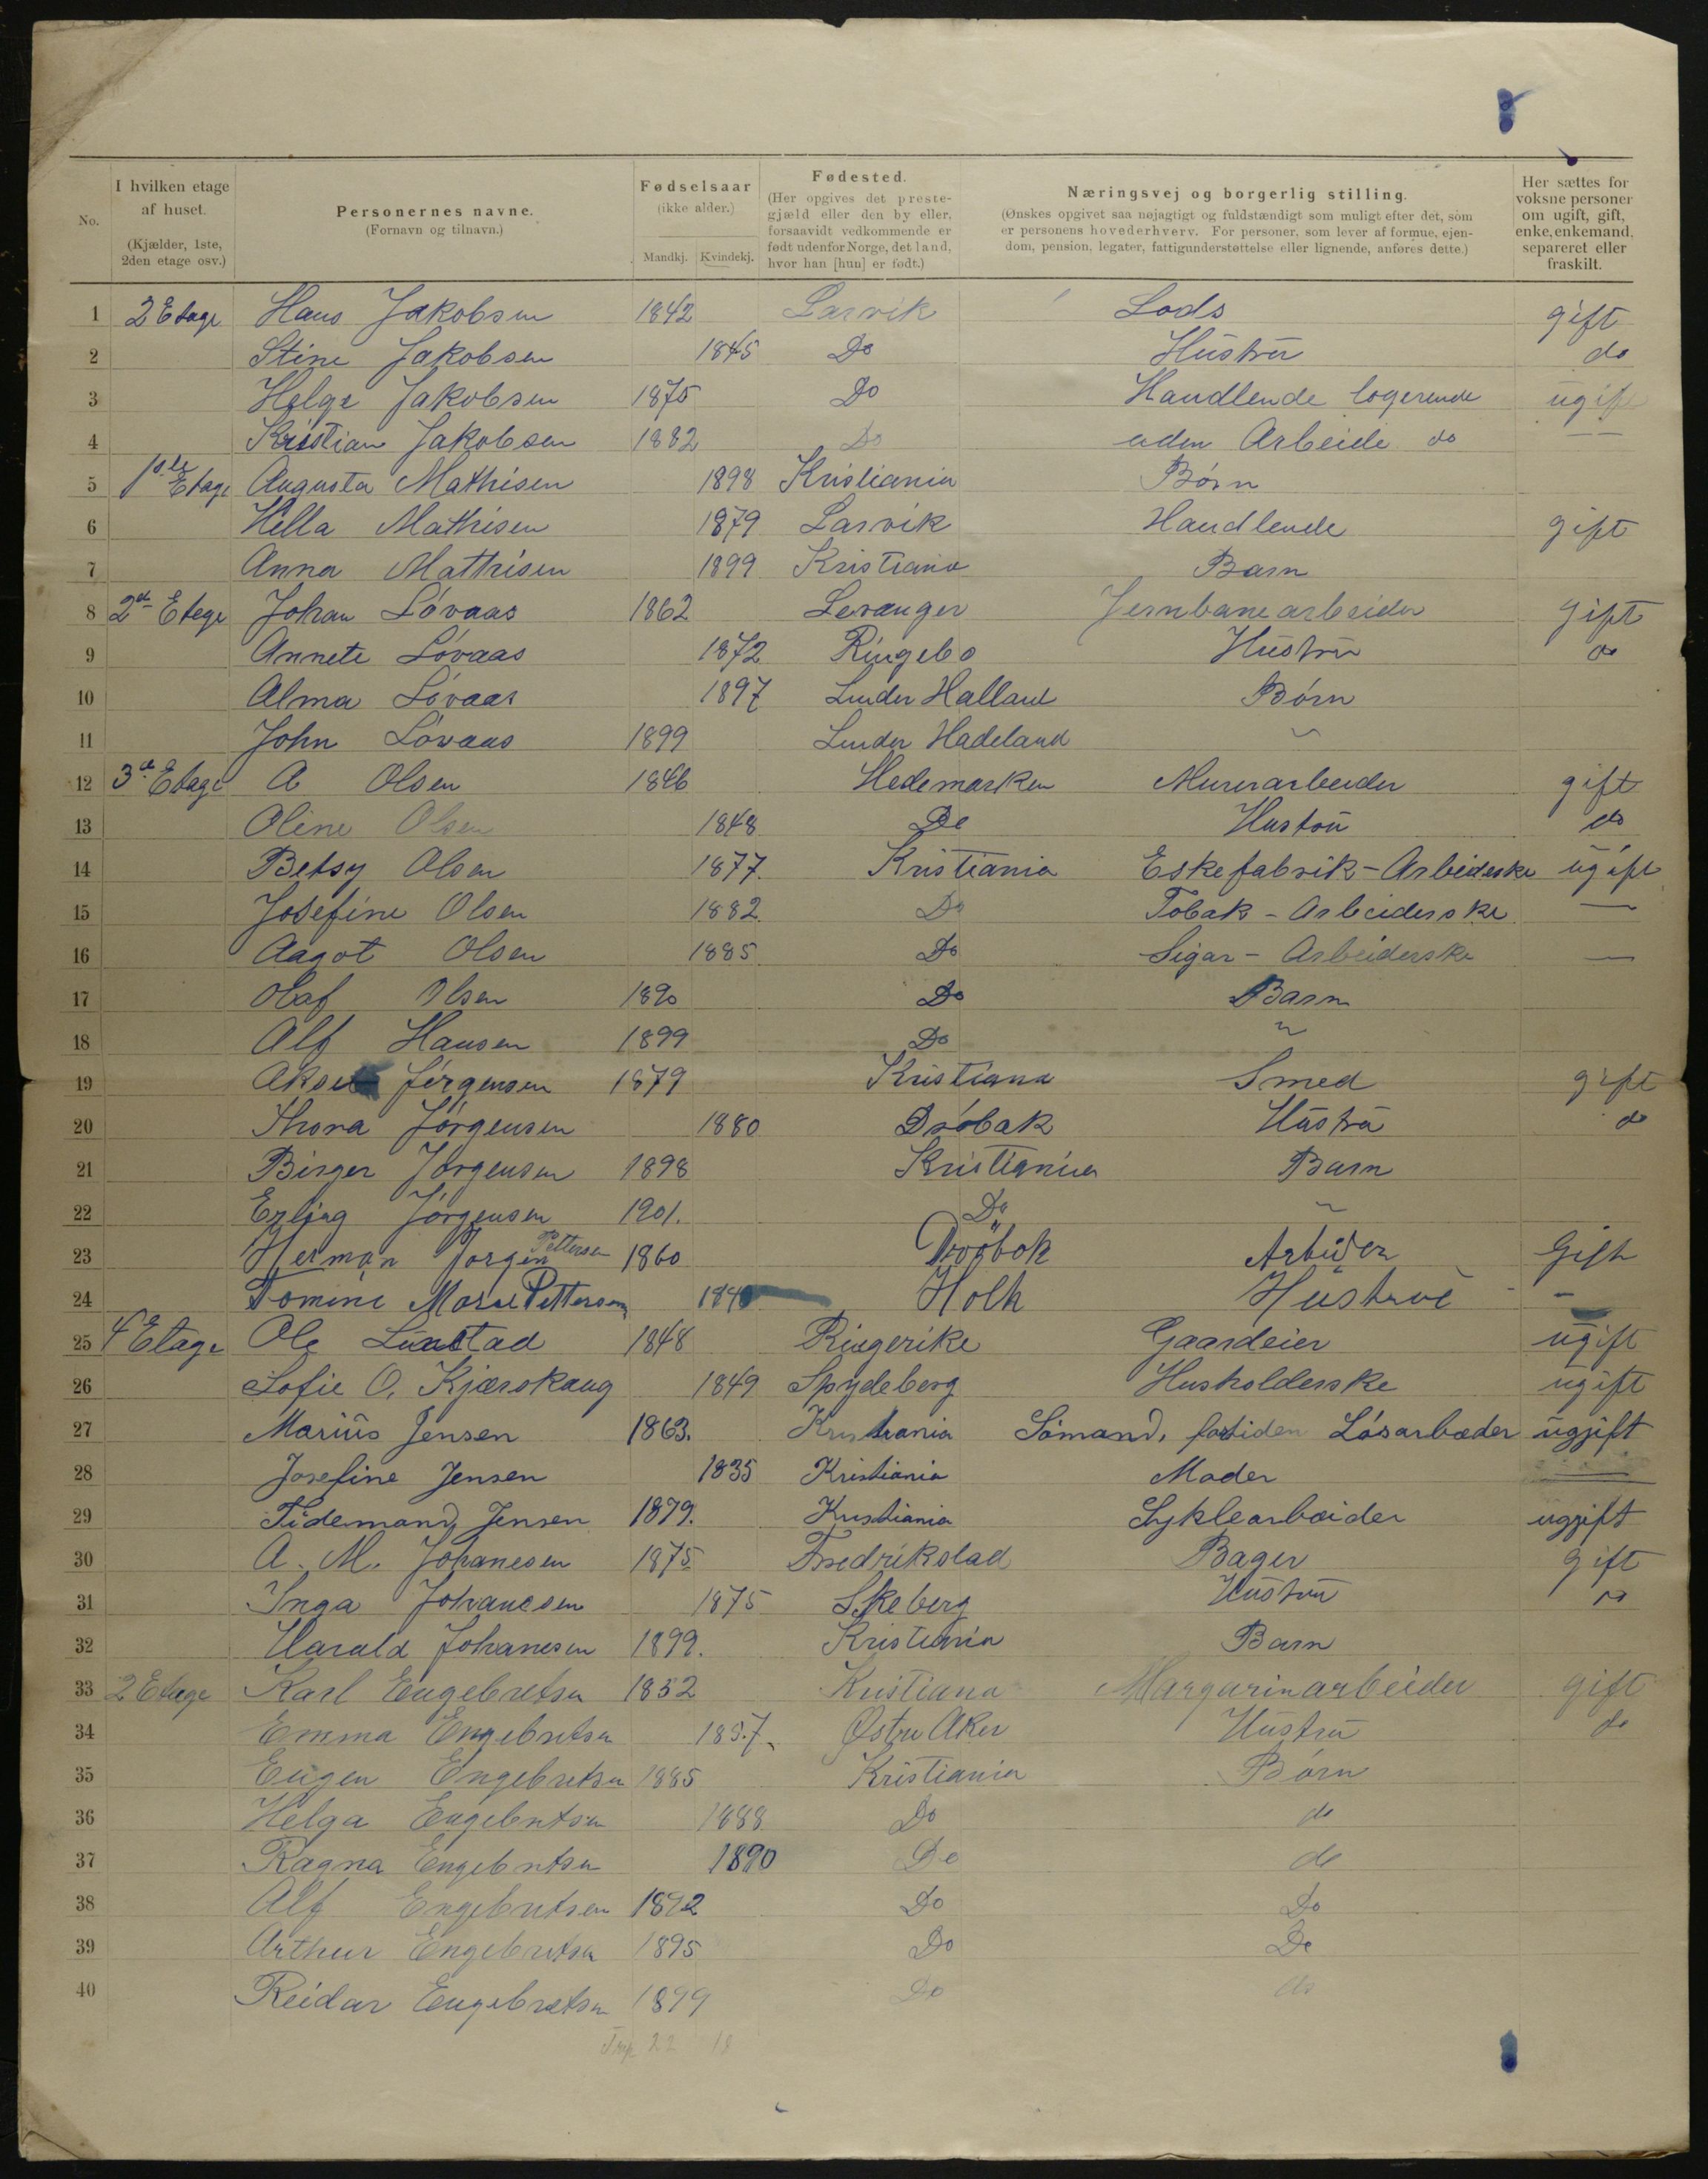 No.
I hvilken etage af huset. (Kjælder, 1ste, 2den etage osv.)
Personernes navne. (Fornavn og tilnavn.)
Fødselsaar (ikke alder.) Mandkj. Kvindekj.
Fødested. (Her opgives det prestegjæld eller den by eller, forsaavidt vedkommende er født udenfor Norge, det land, hvor han [hun] er født.)
Næringsvej og borgerlig stilling. (Ønskes opgivet saa nøjagtigt og fuldstændigt som muligt efter det, som er personens hovederhverv. For personer, som lever af formue, ejendom, pension, legater, fattigunderstøttelse eller lignende, anføres dette.)
Her sættes for voksne personer om ugift, gift, enke, enkemand, separeret eller fraskilt.
1 2 Etage Hans Jakobsen 1842 Larvik Lods gift
2 Stine Jakobsen 1845 Do Hustru do
3 Helge Jakobsen 1875 Do Handlende logerende ugift
4 Kristian Jakobsen 1882 Do uden Arbeide do —
5 1ste Etage Augusta Mathisen 1898 Kristiania Børn
6 Hilla Mathisen 1879 Larvik Handlende gift
7 Anna Mathisen 1899 Kristiania Barn
8 2d Etage Johan Lóvaas 1862 Levanger Jernbanearbeider gift
9 Annete Lóvaas 1872 Ringebo Hustru do
10 Alma Lóvaas 1897 Lunder Halland Børn
11 John Lóvaas 1899 Lunder Hadeland "
12 3d Etage A Olsen 1846 Hedemarken Murerarbeider gift
13 Oline Olsen 1848 Do Hustru do
14 Betsy Olsen 1877. Kristiania Eskefabrik - Arbeideske ugift
15 Josefine Olsen 1882. Do Tobak - Arbeiderske —
16 Aagot Olsen 1885. Do Sigar - Arbeiderske —
17 Olaf Olsen 1890 Do Barn
18 Alf Hansen 1899 Do "
19 Aksel Jórgensen 1879 Kristiana Smed gift
20 Thora Jórgensen 1880 Dróbak Hustru do
21 Birger Jórgensen 1898 Kristiania Barn
22 Erling Jórgensen 1901. Do "
23 Herman Jorgen Pettersen 1860 Drøbok Arbeider Gift
24 Tomine Marie Pettersen Holh Hustrue -
25 4 Etage Ole Lunstad 1848 Ringerike Gaardeier ugift
26 Sofie O. Kjærskaug 1849 Spydeberg Husholderske ugift
27 Marius Jensen 1863. Kristiania Sómand, fortiden Lósarbæder ugjift
28 Josefine Jensen 1835 Kristiania Moder —
29 Tidemand Jensen 1879. Kristiania Syklearbeider ugjift
30 A. M. Johanesen 1875 Fredrikstad Bager gift
31 Inga Johanesen 1875 Skeberg Hustru do
32 Harald Johanesen 1899. Kristiania Barn
33 2 Etage Karl Engebretsen 1852 Kristiana Margarinarbeider gift
34 Emma Engebretsen 1857. Østre Aker Hustru do
35 Eugen Engebretsen 1885 Kristiania Børn
36 Helga Engebretsen 1888 Do do
37 Ragna Engebretsen 1890 Do do
38 Alf Engebretsen 1892 Do Do
39 Arthur Engebretsen 1895 Do Do
40 Reidar Engebretsen 1899 Do do
22 18